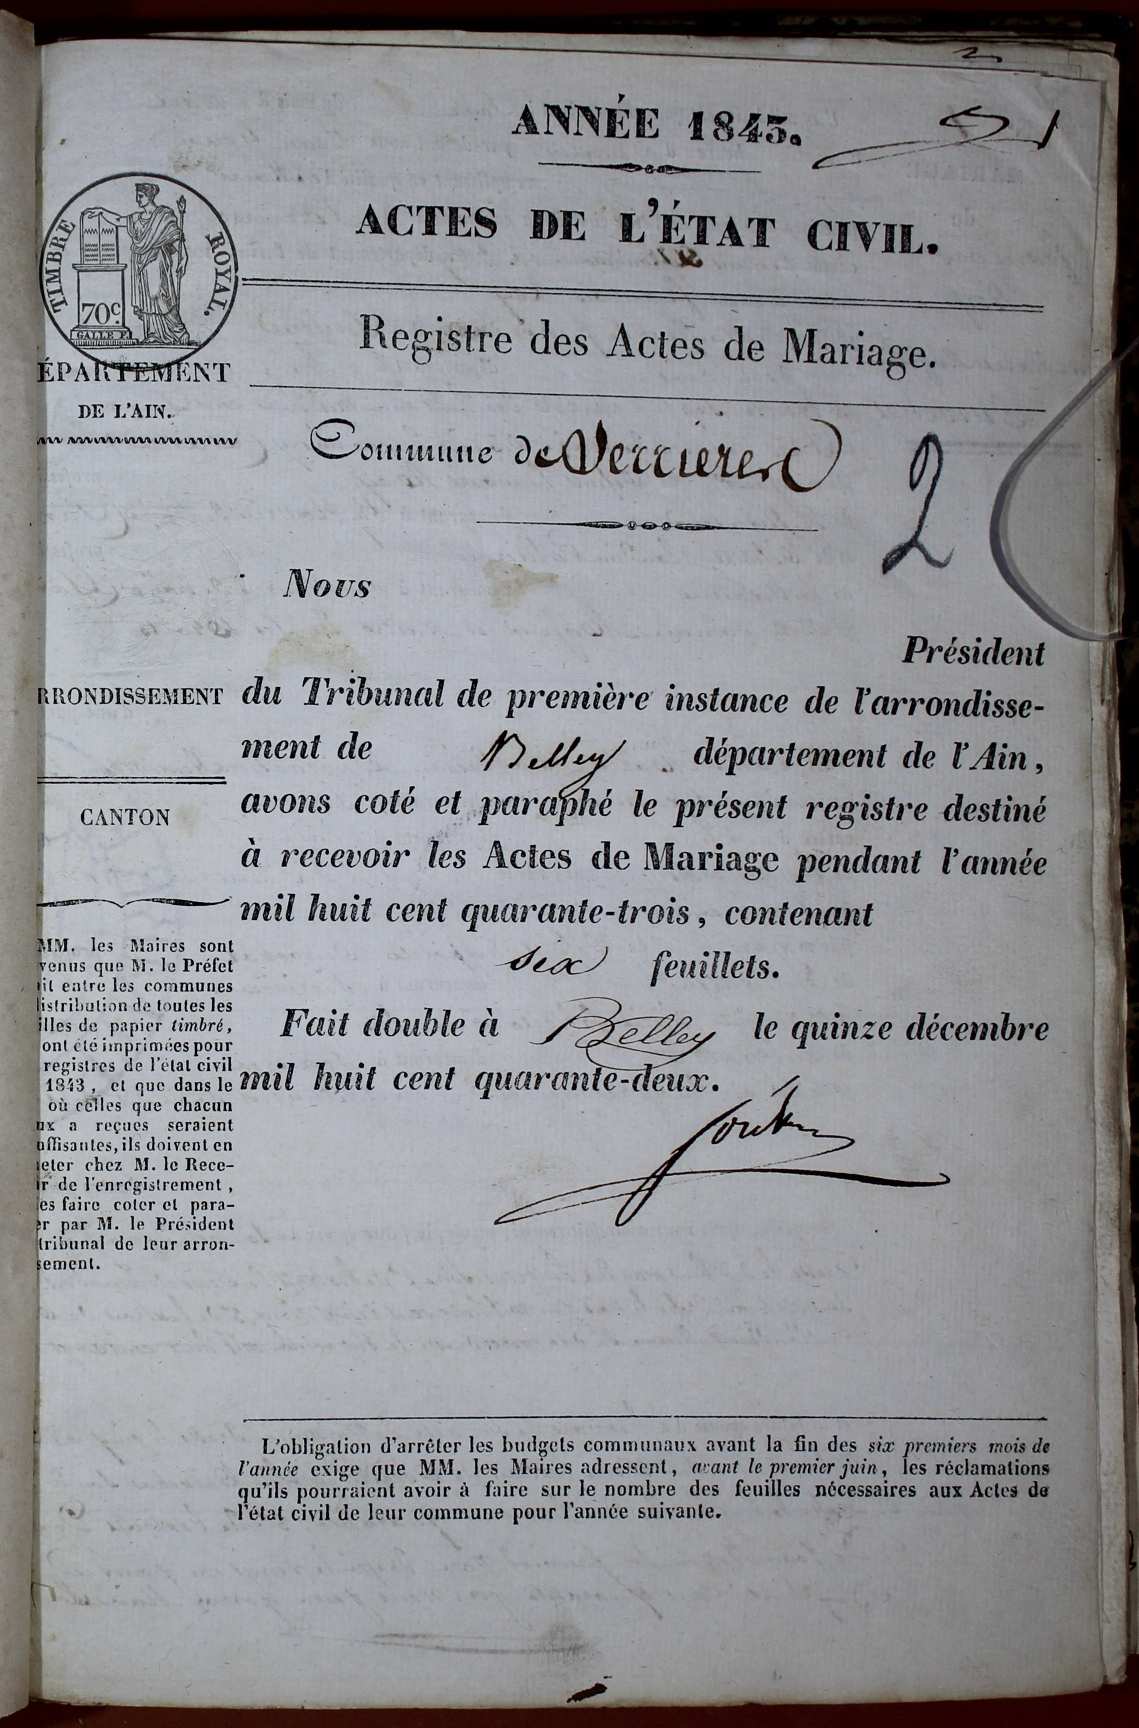 2
ANNÉE 1843.
1
ACTES DE L'ÉTAT CIVIL.
TIMBRE ROYAL.
70c
GALLE F.
Registre des Actes de Mariage.
ÉPARTEMENT
DE L'AIN.
Commune de Verrieres
2
Nous
Président
RRONDISSEMENT
du Tribunal de première instance de l'arrondisse-
ment de Belley département de l'Ain,
CANTON
avons coté et paraphé le présent registre destiné
à recevoir les Actes de Mariage pendant l'année
mil huit cent quarante-trois, contenant
six feuillets.
Fait double à Belley le quinze décembre
mil huit cent quarante-deux.
MM. les Maires sont
venus que M. le Préfet
it entre les communes
istribution de toutes les
illes de papier timbré,
ont été imprimées pour
registres de l'état civil
1843, et que dans le
où celles que chacun
ux a reçues seraient
uffisantes, ils doivent en
eter chez M. le Rece-
r de l'enregistrement,
es faire coter et para-
er par M. le Président
tribunal de leur arron-
sement.
L'obligation d'arrêter les budgets communaux avant la fin des six premiers mois de
l'année exige que MM. les Maires adressent, avant le premier juin, les réclamations
qu'ils pourraient avoir à faire sur le nombre des feuilles nécessaires aux Actes de
l'état civil de leur commune pour l'année suivante.